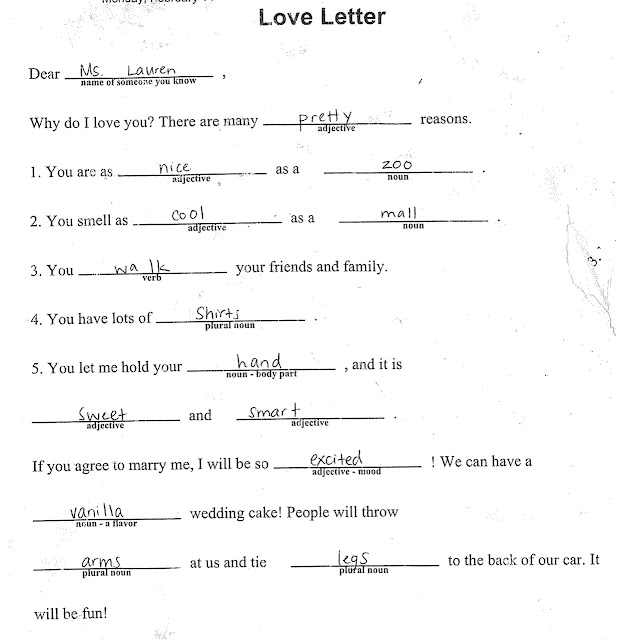 Love Letter
Dear Ms. Lauren ,
name of someone you know
Why do I love you? There are many pretty reasons.
adjective
1. You are as nice as a zoo .
adjective noun
2. You smell as cool as a mall .
adjective noun
3. You walk your friends and family.
verb
4. You have lots of Shirts .
plural noun
5. You let me hold your hand , and it is
noun - body part
sweet and smart .
adjective adjective
If you agree to marry me, I will be so excited ! We can have a
adjective - mood
vanilla wedding cake! People will throw
noun - a flavor
arms at us and tie legs to the back of our car. It
plural noun plural noun
will be fun!
3.